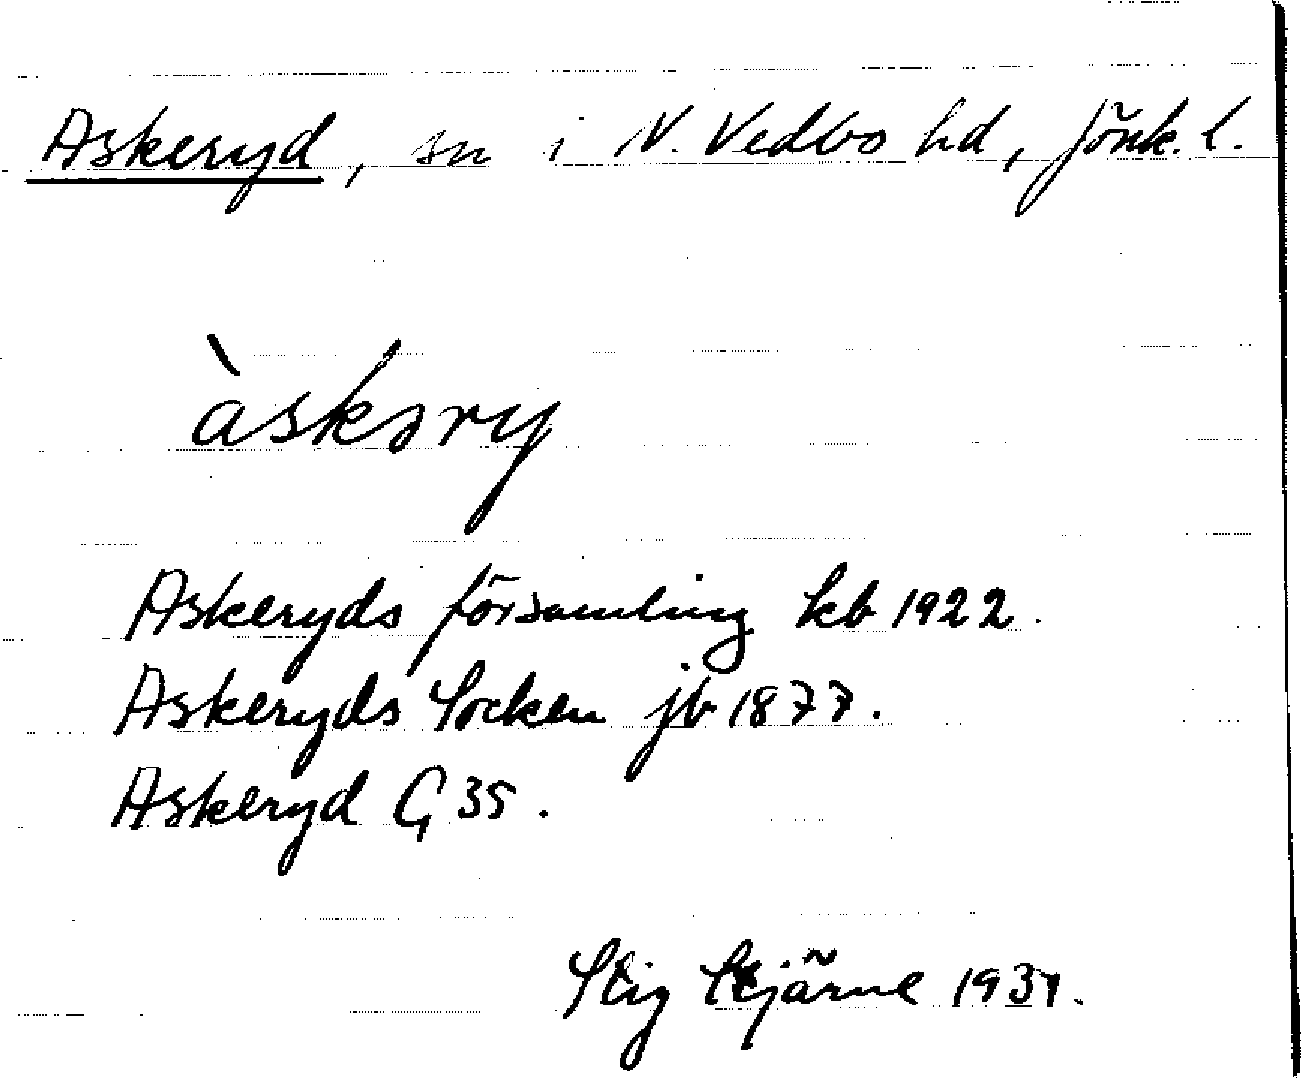 Askeryd, sn i N. Vedbo hd, Jönk. l.
àskəry
Askeryds församling kb 1922.
Askeryds Socken jb 1877.
Askeryd G 35.
Stig Stjärne 1931.